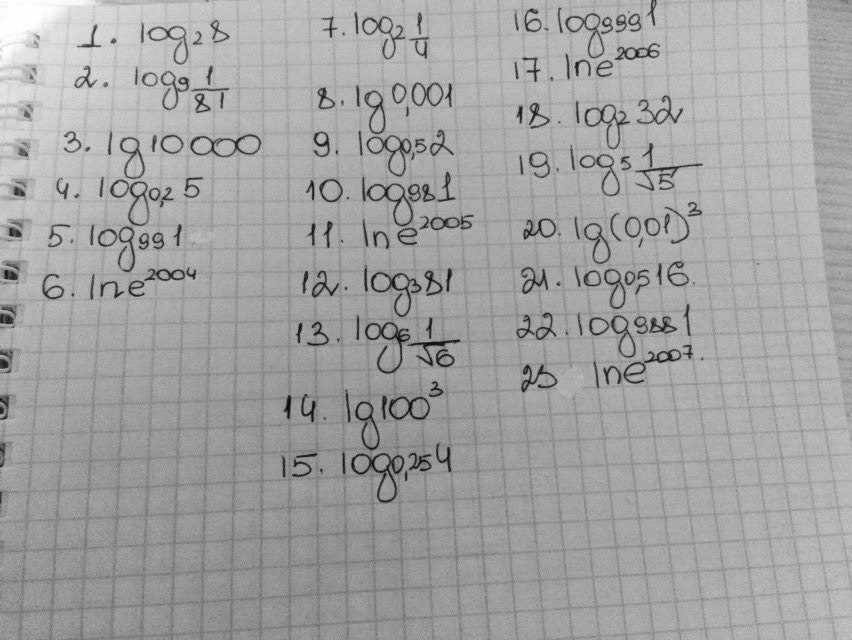 1. log₂8
2. log₉ 1/81
3. lg10000
4. log₀,₂5
5. log₉₉1
6. lne²⁰⁰⁴
7. log₂ 1/4
8. lg0,001
9. log₀,₅2
10. log₉81
11. lne²⁰⁰⁵
12. log₃81
13. log₆ 1/√6
14. lg100³
15. log₀,₂₅4
16. log₉₉₉1
17. lne²⁰⁰⁶
18. log₂32
19. log₅ 1/√5
20. lg(0,01)³
21. log₀,₅16.
22. log₉₈₈1
23 lne²⁰⁰⁷.